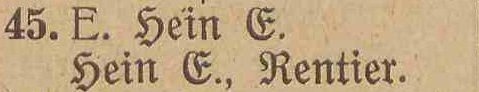 45. E. Hein E.
Hein E., Rentier.